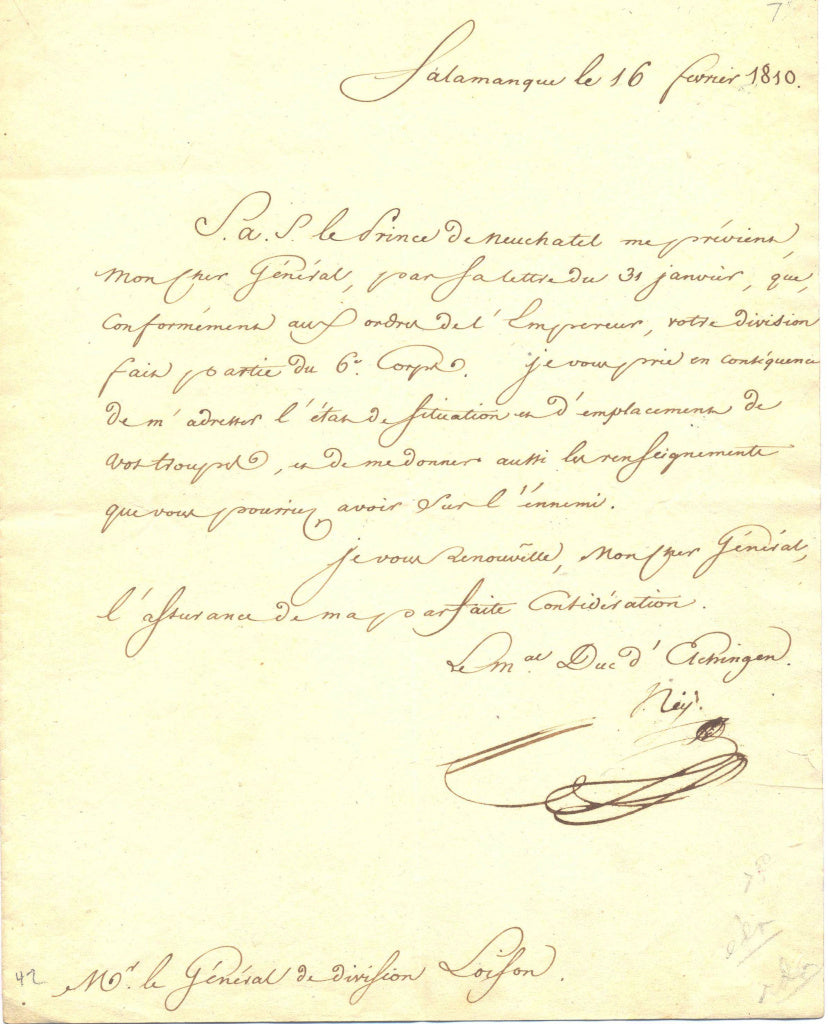 Salamanque le 16 fevrier 1810.
S. a. S. le Prince de neuchatel me prévient,
mon cher Général, par sa lettre du 31 janvier, que,
conformément aux ordres de l'Empereur, votre division
fait partie du 6e. Corps. je vous prie en conséquence
de m'adresser l'état de situation et d'emplacement de
vos troupes, et de me donner aussi les renseignements
que vous pourriez avoir sur l'ennemi.
je vous renouvelle, mon cher Général,
l'assurance de ma parfaite considération.
Le mal Duc d'Elchingen.
Ney.
42
Mr. le Général de division Loison.